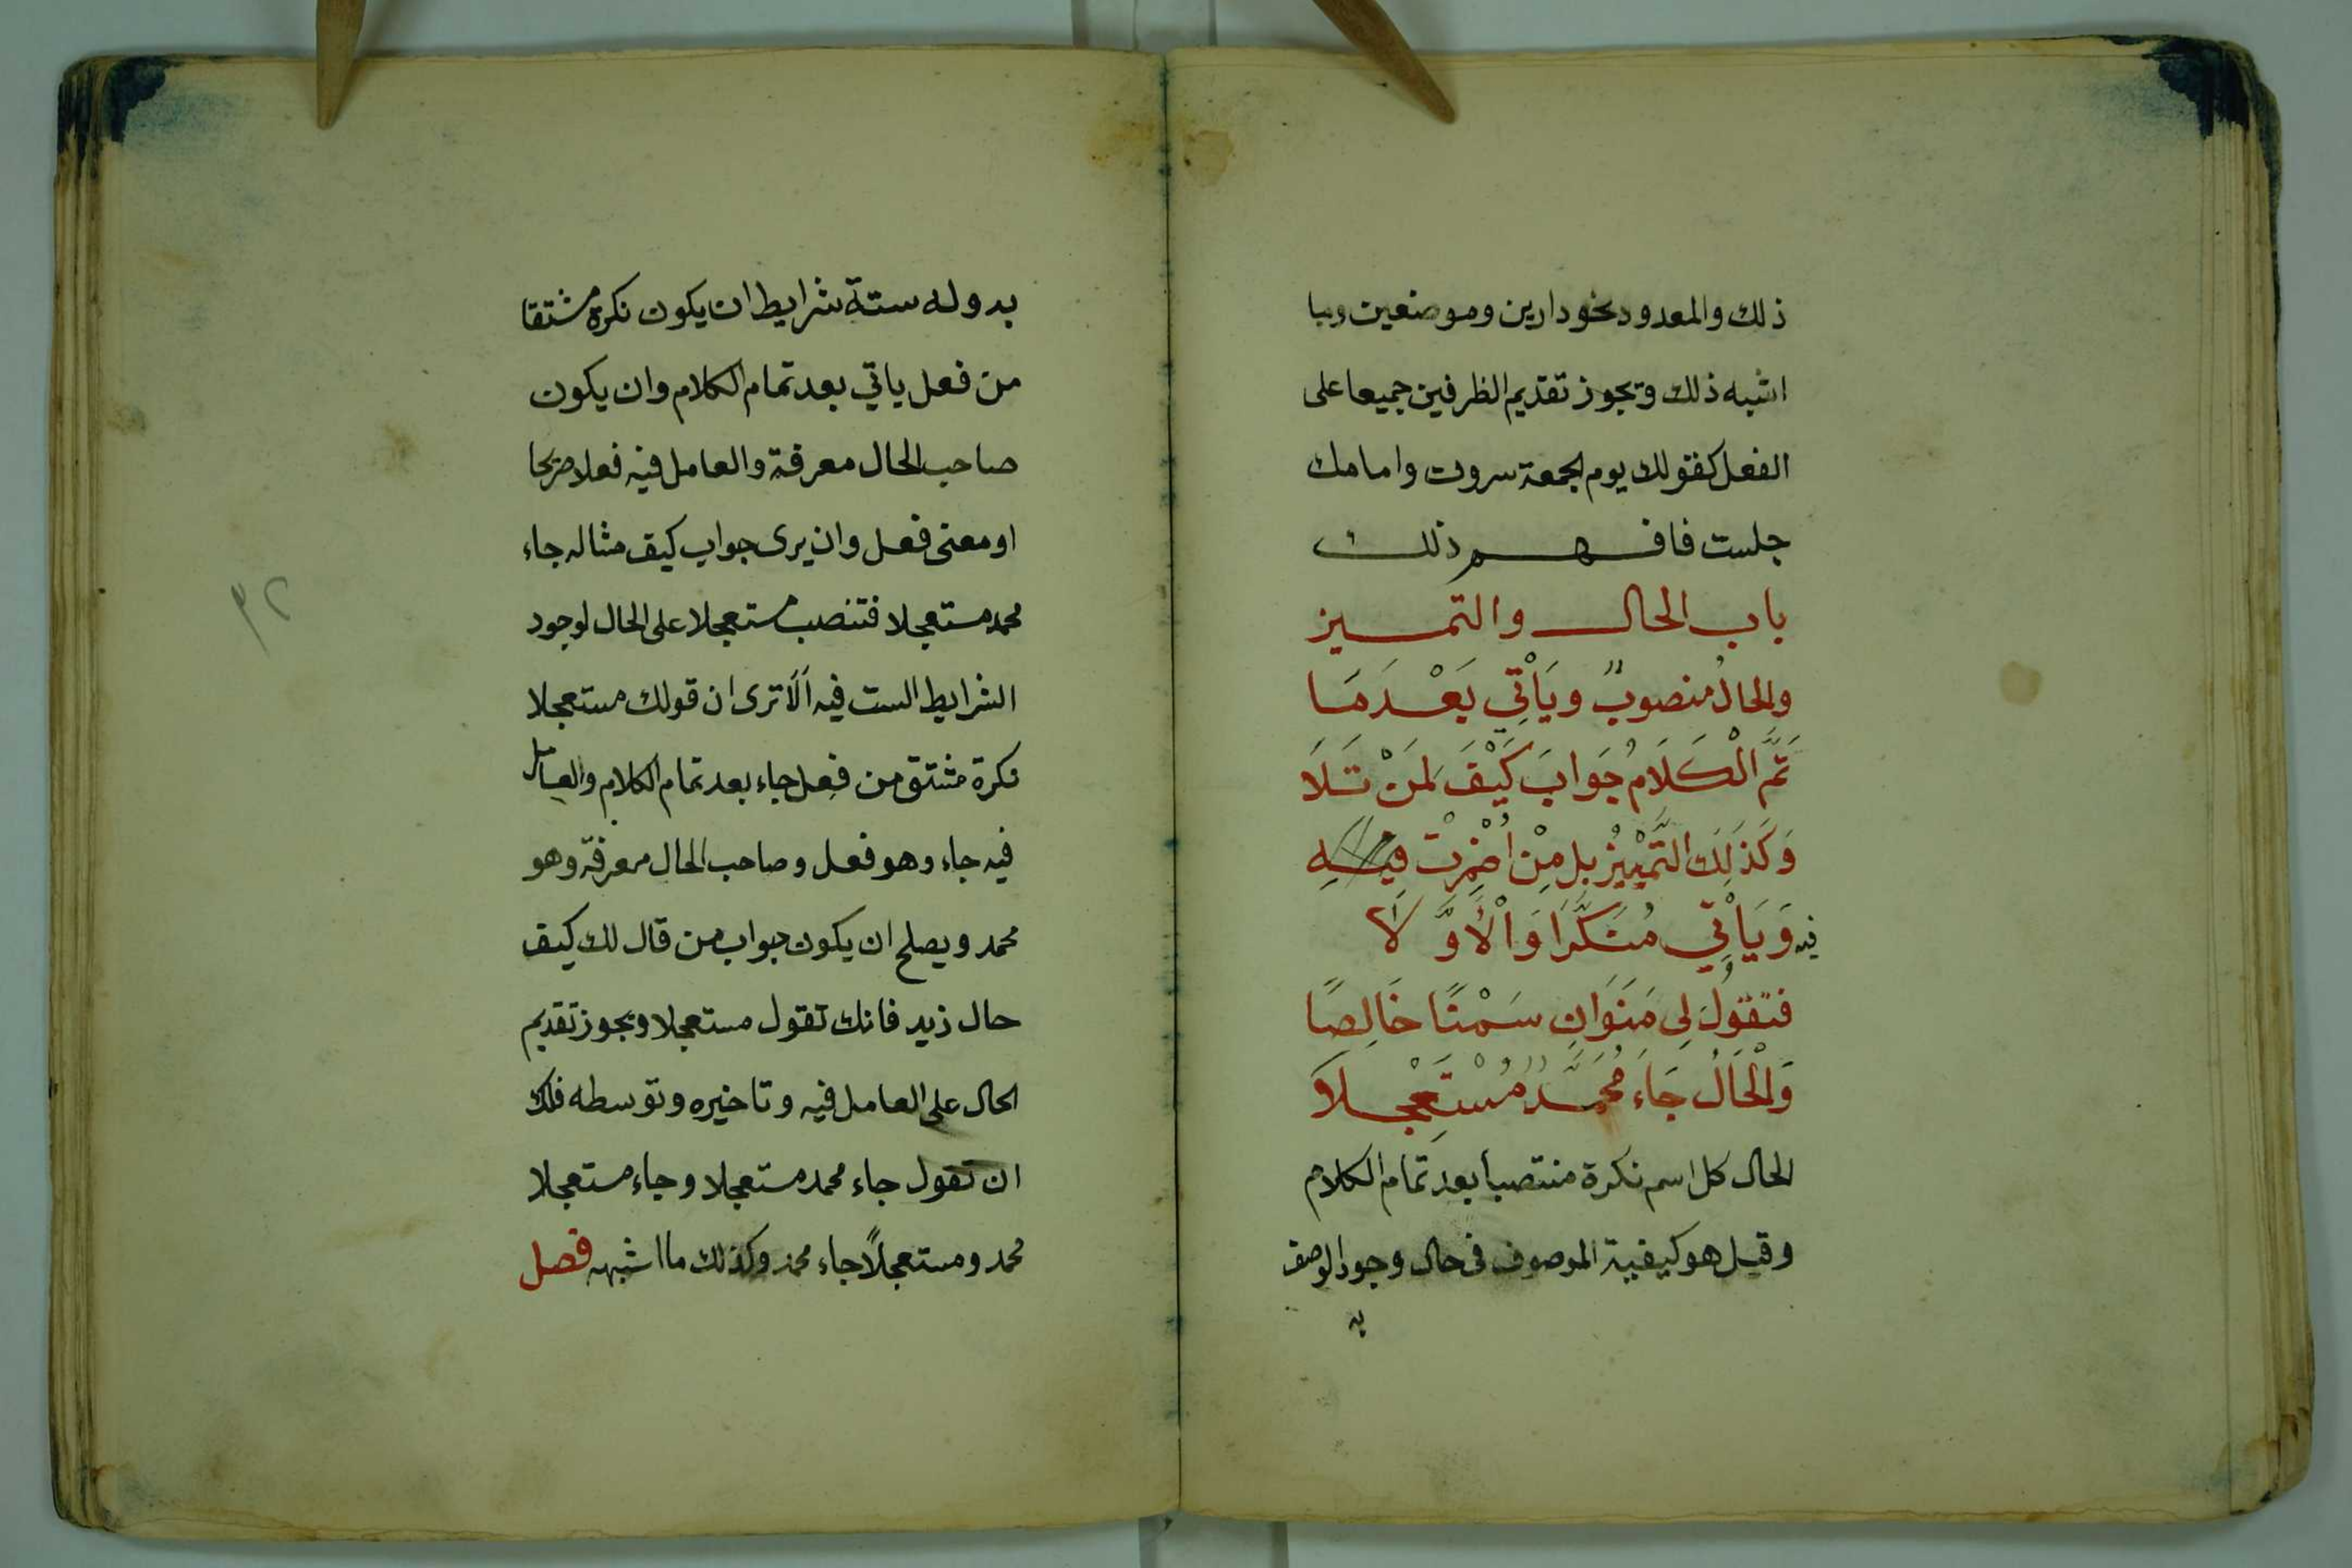 ذلك والمعدود نحو دارين وموضعين وما
اشبه ذلك ويجوز تقديم الظرفين جميعا على
الفعل كقولك يوم الجمعة سروت وامامك
جلست فافهم ذلك
باب الحال والتميز
والحالُ منصوبٌ ويَأْتِي بَعْدَمَا
تَمَّ الْكَلَامُ جَوابَ كَيْفَ لِمَنْ تَلَا
وَكَذَلِكَ التَّمْيِيْزُ بل مِنْ اُضْمِرْتْ فيه
فيه وَيَأْتِي مُنَكَّرًا وَالْأَوَّلَا
فتقُولُ لِي مَنَوَانِ سَمْنًا خَالِصًا
وَالْحَالُ جَاءَ مُحَمَّدٌ مُسْتَعْجِلَا
الحال كل اسم نكرة منتصبا بعد تمام الكلام
وقيل هو كيفية الموصوف فى حال وجود الوصف
به
به وله ستة شرايط ان يكون نكرة مشتقا
من فعل ياتي بعد تمام الكلام وان يكون
صاحب الحال معرفة والعامل فيه فعلا صريحا
او معنى فعل وان يرى جواب كيف مثاله جاء
محمد مستعجلا فتنصب مستعجلا على الحال لوجود
الشرايط الست فيه اَلَا ترى ان قولك مستعجلا
نكرة مشتق من فعل جاء بعد تمام الكلام والعامل
فيه جاء وهو فعل وصاحب الحال معرفة وهو
محمد ويصلح ان يكون جواب من قال لك كيف
حال زيد فانك تقول مستعجلا ويجوز تقديم
الحال على العامل فيه وتاخيره وتوسطه فلك
ان تقول جاء محمد مستعجلا وجاء مستعجلا
محمد ومستعجلاً جاء محمد وكذلك ما اشبهه فصل
٣٢